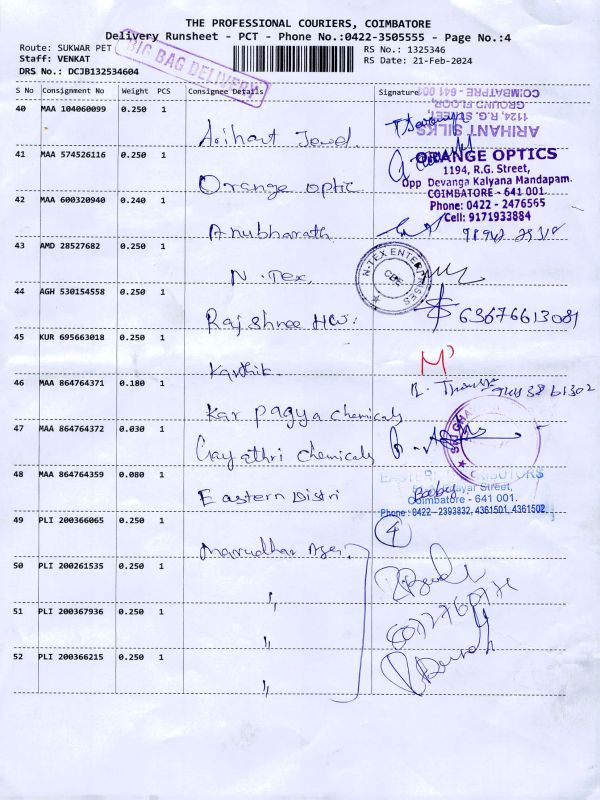 THE PROFESSIONAL COURIERS, COIMBATORE
Delivery Runsheet - PCT - Phone No.:0422-3505555 - Page No.:4
Route: SUKWAR PET
RS No.: 1325346
Staff: VENKAT
RS Date: 21-Feb-2024
DRS No.: DCJB132534604
BIG BAG DELIVERY
S No Consignment No Weight PCS Consignee Details Signature
COIMBATPRE - 641 001
GROUND FLOOR,
1124, R.G. STREET,
ARIHANT SILKS
40 MAA 104060099 0.250 1
Arihant Jewel.
41 MAA 574526116 0.250 1
Orange optic
ORANGE OPTICS
1194, R.G. Street,
Opp Devanga Kalyana Mandapam.
COIMBATORE - 641 001
Phone: 0422 - 2476565
Cell: 9171933884
42 MAA 600320940 0.240 1
Anubharath
43 AMD 28527682 0.250 1
N. Tex,
N-TEX ENTERPRISES
CBE.
44 AGH 530154558 0.250 1
Rajshree HW:
63676613081
45 KUR 695663018 0.250 1
Karthik
46 MAA 864764371 0.180 1
Kar pagya chemicals
47 MAA 864764372 0.030 1
Gayathri chemicals
48 MAA 864764359 0.080 1
Eastern Distri
Baby
Coimbatore - 641 001.
Phone: 0422-2393832, 4361501, 4361502
49 PLI 200366065 0.250 1
Marudhar Agei.
4
50 PLI 200261535 0.250 1
"
51 PLI 200367936 0.250 1
"
52 PLI 200366215 0.250 1
"